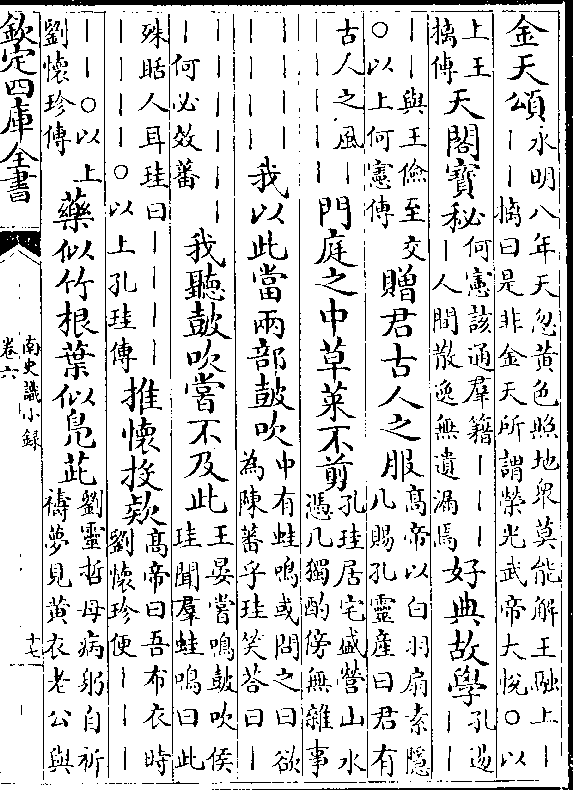 金天頌永明八年天忽黃色照地衆莫能解王融上丨
丨丨摛曰是非金天所謂榮光武帝大悅〇以
上王摛傳天閣寳秘何憲該通羣籍丨丨丨
丨人間散逸無遺漏焉好典故學孔逷丨丨
丨丨與王儉至交〇以上何憲傳贈君古人之服高帝以白羽扇素隱
几賜孔靈産曰君有
古人之風丨丨丨丨丨丨門庭之中草萊不剪孔珪居宅盛營山水
憑几獨酌傍無雜事
丨丨丨丨丨丨丨丨我以此當兩部鼓吹中有蛙鳴或問之曰欲
為陳蕃乎珪笑荅曰丨
丨丨丨丨丨丨丨何必效蕃我聽鼓吹嘗不及此王晏嘗鳴鼓吹侯
珪聞羣蛙鳴曰此
殊聒人耳珪曰丨丨丨丨丨丨丨丨〇以上孔珪傳推懷投欵高帝曰吾布衣時
劉懷珍便丨丨
丨丨〇以上劉懷珍傳藥似竹根葉似鳧茈劉靈哲母病躬自祈
禱夢見黃衣老公與
欽定四庫全書
南史識小録
卷六
十七